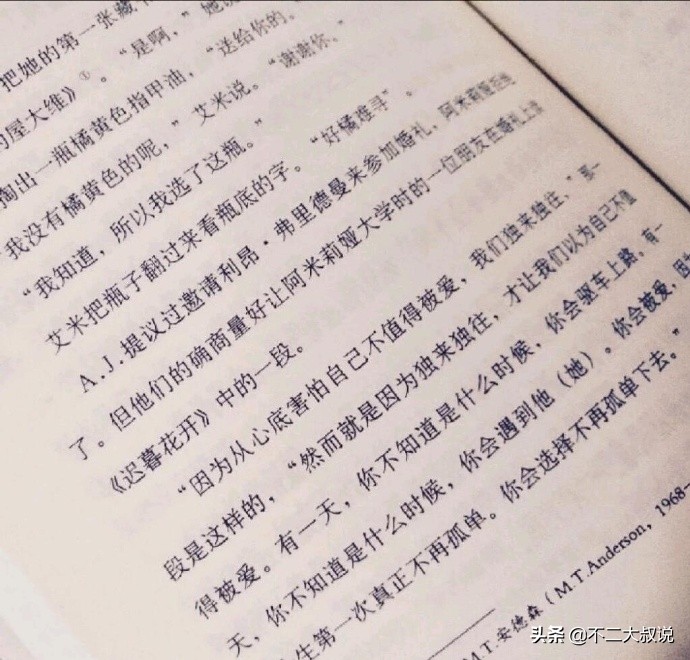 把她的第一张藏书
的屋大维》①。“是啊，”她说
掏出一瓶橘黄色指甲油，“送给你的，
我没有橘黄色的呢，”艾米说。“谢谢你。”
“我知道，所以我选了这瓶。”
艾米把瓶子翻过来看瓶底的字。“好橘难寻”。
A.J.提议过邀请利昂·弗里德曼来参加婚礼，阿米莉娅拒绝
了。但他们的确商量好让阿米莉娅大学时的一位朋友在婚礼上读
《迟暮花开》中的一段。
“因为从心底害怕自己不值得被爱，我们独来独往，”那一
段是这样的，“然而就是因为独来独往，才让我们以为自己不值
得被爱。有一天，你不知道是什么时候，你会驱车上路。有一
天，你不知道是什么时候，你会遇到他（她）。你会被爱，因为
生第一次真正不再孤单。你会选择不再孤单下去。”
M.T.安德森（M.T.Anderson，1968—
头条 @不二大叔说